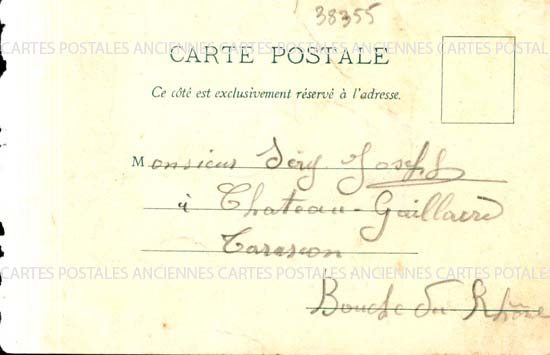 38355
CARTES POSTALES ANCIENNES CARTES POSTALES ANCIENNES CARTES POSTALES
CARTE POSTALE
Ce côté est exclusivement réservé à l'adresse.
Monsieur Séry Joseph
à Chateau-Gaillard
Tarascon
CARTES POSTALES ANCIENNES CARTES POSTALES ANCIENNES CARTES POSTALES
Bouche du Rhône